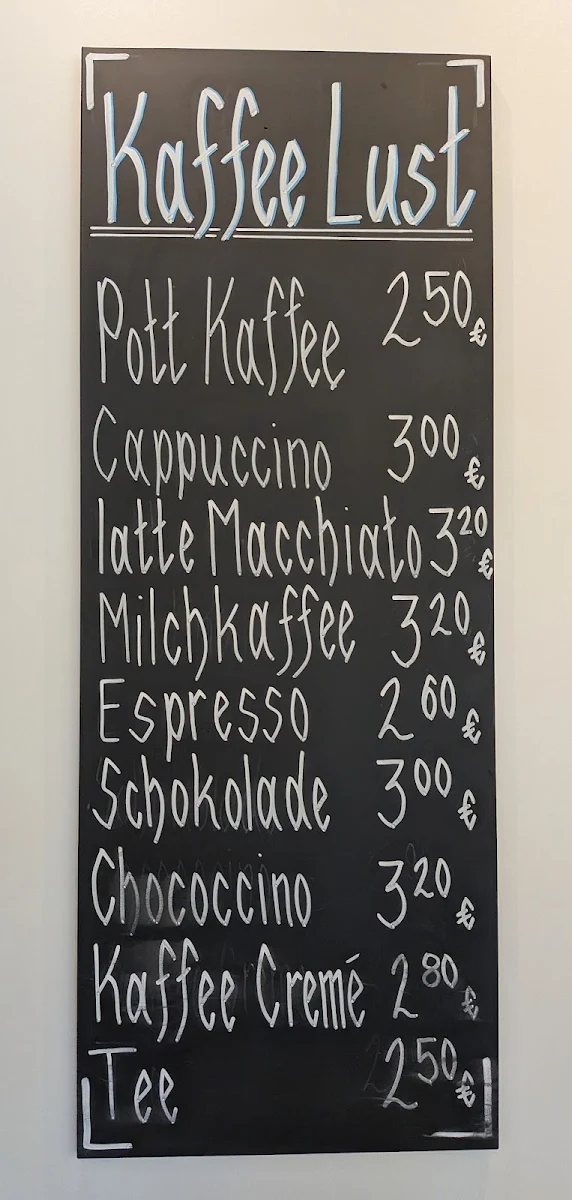 Kaffee Lust
Pott Kaffee 2 50 €
Cappuccino 3 00 €
latte Macchiato 3 20 €
Milchkaffee 3 20 €
Espresso 2 60 €
Schokolade 3 00 €
Chococcino 3 20 €
Kaffee Cremé 2 80 €
Tee 2 50 €